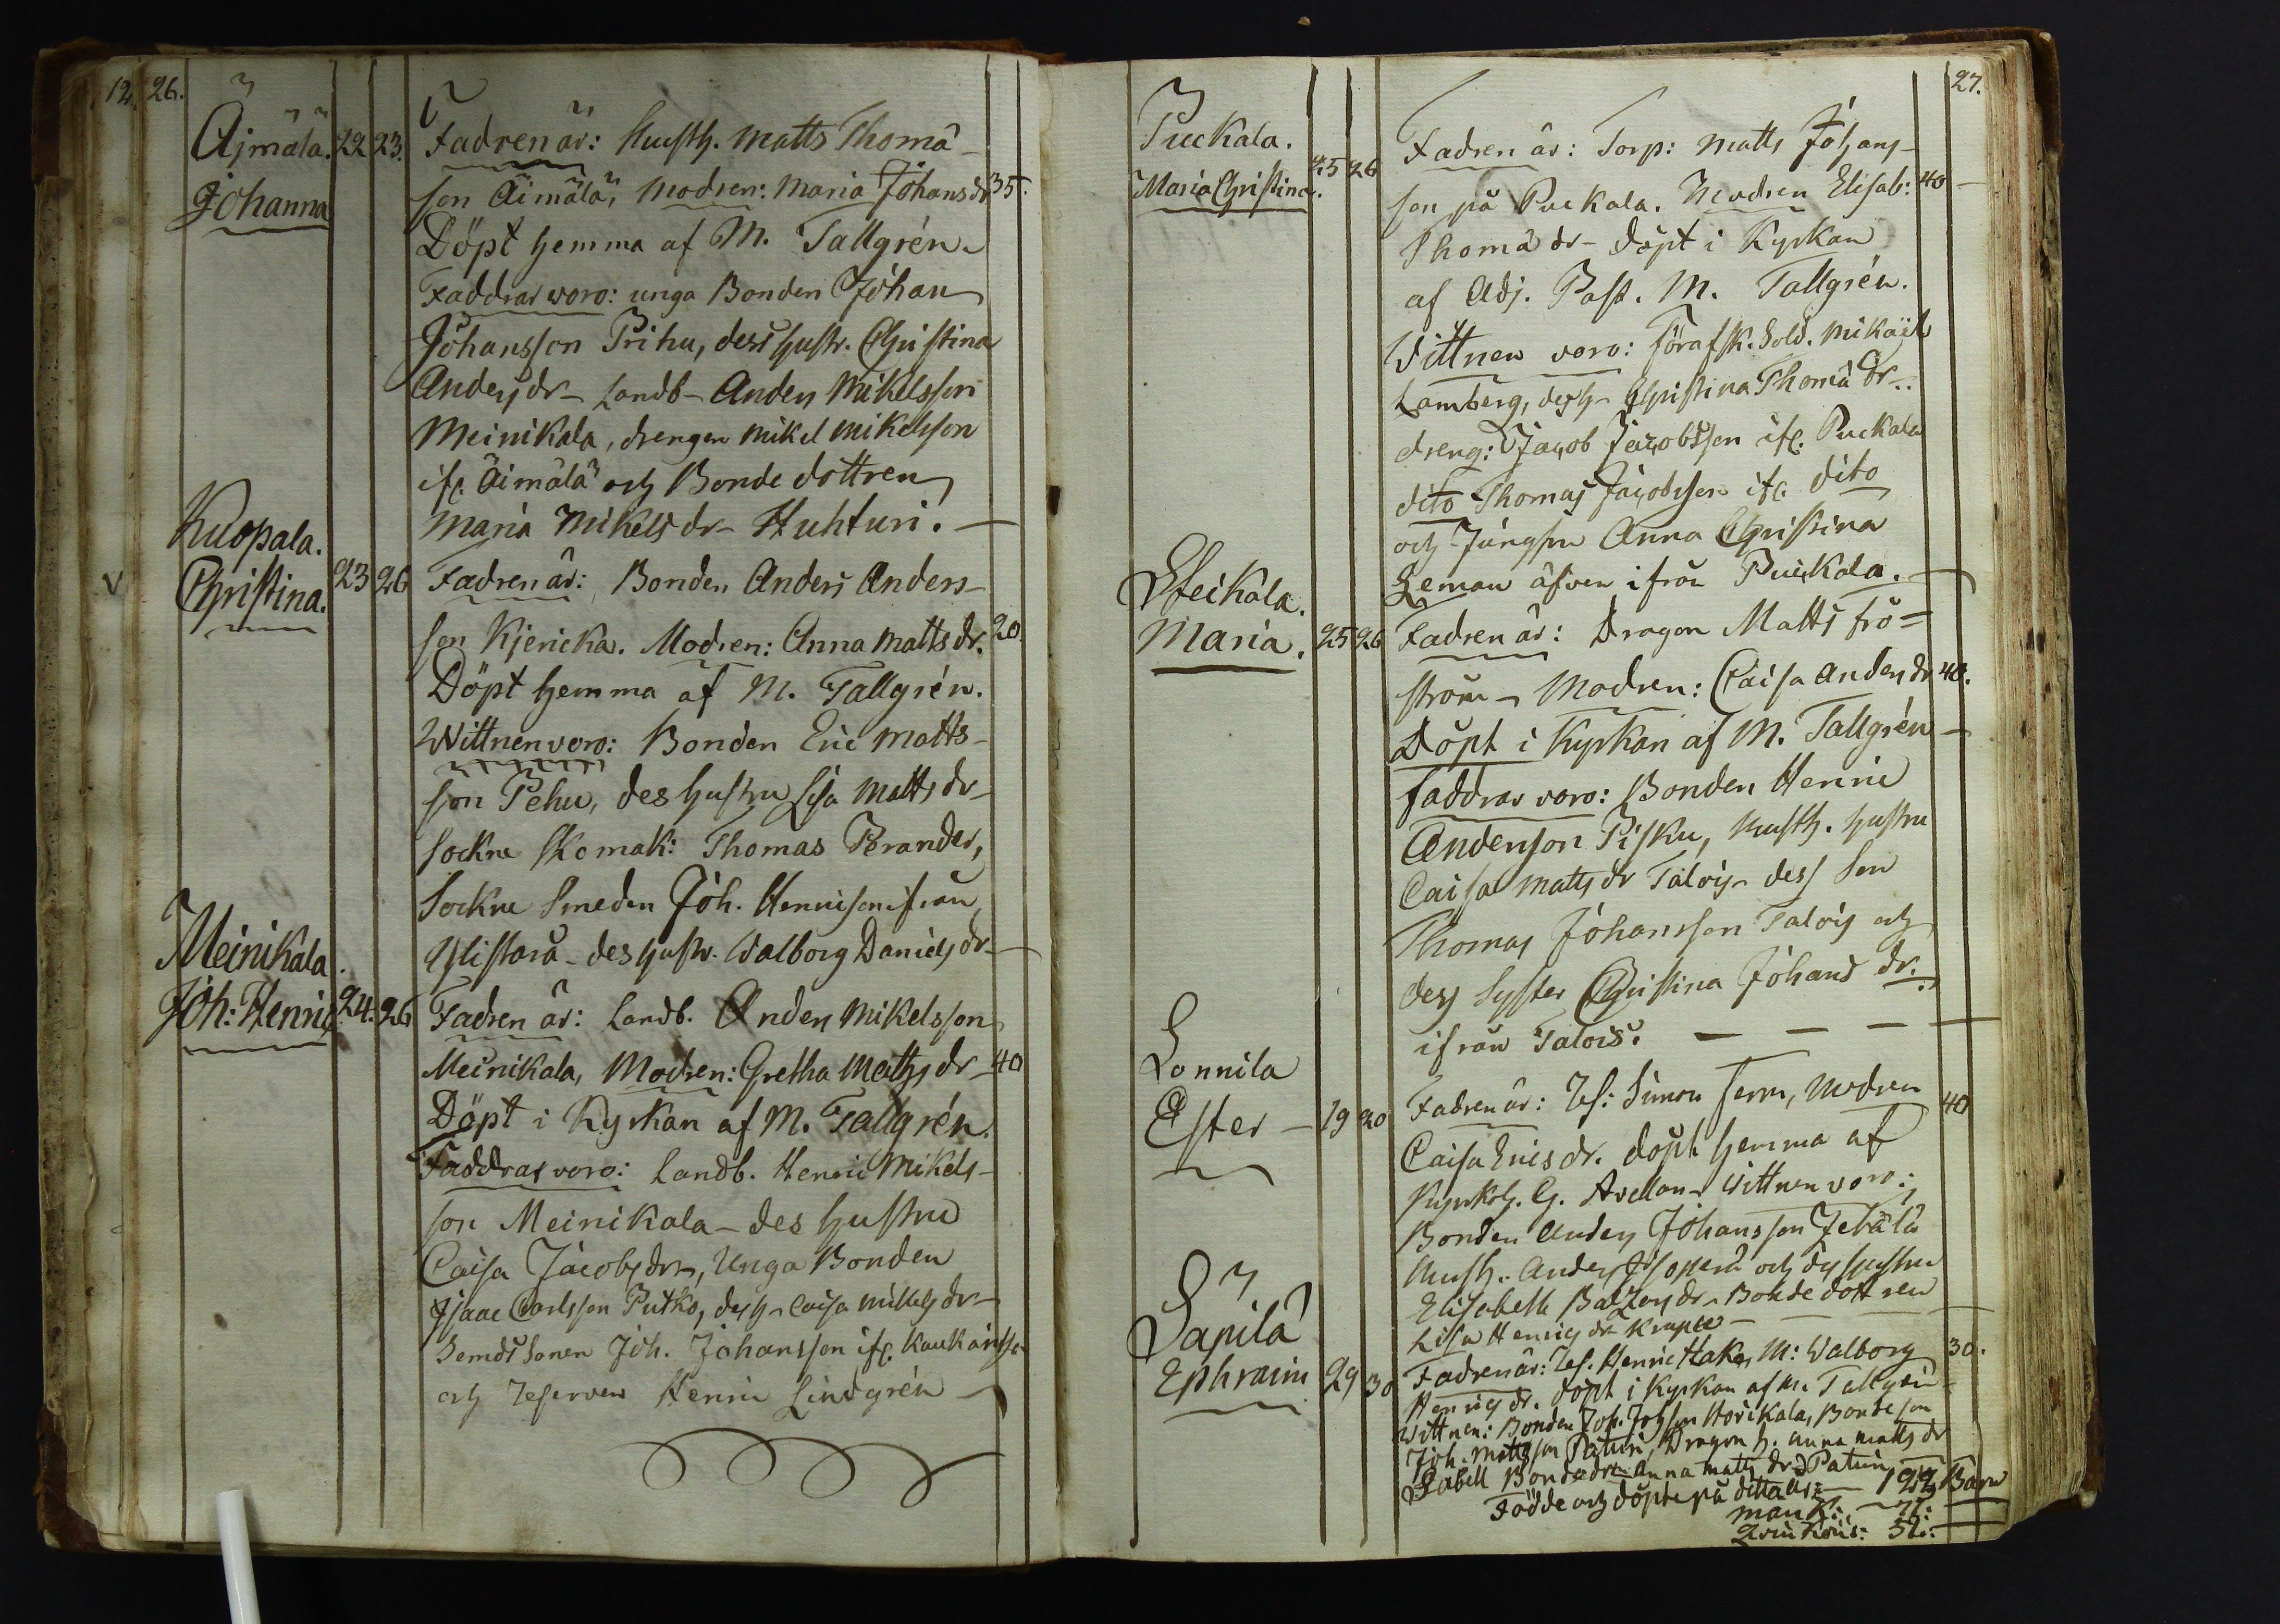 12. 26.
Äjmälä. 22 23. Fadren är: Husth. Matts Thomæ-
Johanna
son Äimälä, Modren: Maria Johansdr 35.
Döpt hemma af M. Tallgrén.
Faddrar woro: unga Bonden Johan
Johansson Prihu, dess hustr. Christina
Andersdr - Landb - Anders Mikelsson
Meinikala, drengen Mikel Mikelsson
ifr. Äimälä och Bonde dottren
Maria Mikelsdr - Huhturi. -
Kuopala.
Christina. 23 26 Fadren är: Bonden Anders Anders-
son Kjericka. Modren: Anna Mattsdr. 20.
Döpt hemma af M. Tallgrén.
Wittnen voro: Bonden Eric Matts-
son Pehu, des hustru Lisa Mattsdr -
Sockne Skomak: Thomas Brander,
Sockne Smeden Joh. Henricson ifrån
Ylistarå - des hustr. Walborg Danielsdr -
Meinikala.
Joh: Henric 24. 26 Fadren är: Landb. Anders Mikelsson
Meinikala, Modren: Gretha Matts dr - 40
Döpt i Kyrkan af M. Tallgrén.
Faddrar voro: Landb. Henric Mikels-
son Meinikala - des hustru
Caisa Jacobsdr -, Unga Bonden
Isaac Carlsson Putko, des h - Caisa Mikelsdr -
Joh. Johansson ifr.
och Reserven Henric Lindgrén -
27.
Puckala.
Maria Christina. 25 26 Fadren är: Torp: Matts Johans-
son på Puckala. Modren Elisab: 40 -
Thomæ dr - döpt i Kyrkan
af Adj. Past. M. Tallgrén.
Wittnen voro: förafsk. Sold. Mikaël
Lamberg, des h - Christina Thomæ dr -.
dreng: Jacob Jacobsson ifr. Puckala
dito Thomas Jacobsson ifr. dito
och Jungfru Anna Christina
Zeman äfven ifrån Puckala. -
Steikala.
Maria. 25 26 Fadren är: Dragon Matts Frö=
ström - Modren: Caisa Andersdr 40.
Döpt i Kyrkan af M. Tallgrén -
faddrar voro: Bonden Henric
Andersson Pisku, Husth. hustru
Caisa Matts dr Talois - dess Son
Thomas Johansson Talois och
des Syster Christina Johans dr.
ifrån Talois. - - - -
Lonnila
Ester - 19 20 Fadren är: Res: Simon Ferm, Modren 40
Caisa Ericsdr. döpt hemma af
Kyrkoh. G. Avellan - Wittnen voro:
Bonden Anders Johansson
Husth. Anders och des hustru
Elisabeth Baltzarsdr - Bonde dottren
Lisa Henricsdr -
Sapilä
Ephraim 29 30 Fadren är: Res. Henric Hake, M: Walborg 30.
Henricsdr. döpt i Kyrkan af M. Tallgrén
Wittnen: Bonden Joh. Johsson Horikala, Bonde son
Joh. Mattsson Paturi, Dragon h. Anna Matts dr
Sabell Bondedr - Anna Matts dr Paturi
Födde och döpte på detta år: - 122 Barn
mank:.
Qvinkön: 52: